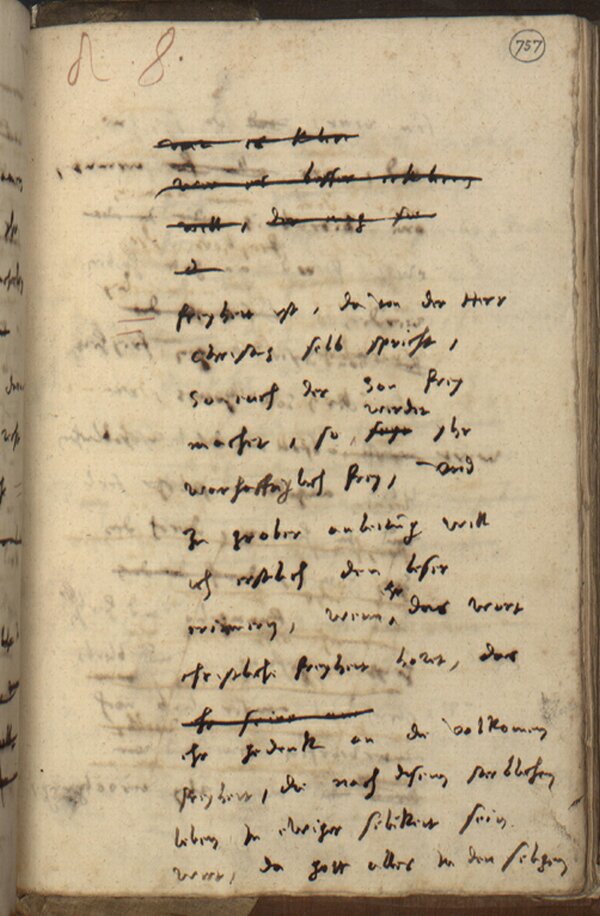 757
8.
freyheit ist, davon der Herr
Christus selb spricht,
So euch der Son frey
werdet
machet, so, ihr
warhafftiglich frey, Vnd
zu grober anleitung will
ich erstlich den leser
ehr
erinnern, wenn, das wort
christliche freyheit horet, das
ehr gedenk an die volkomen
freyheit, die nach disem sterblichen
leben in ewiger selikeit sein
wirt, da gott alles in den seligen